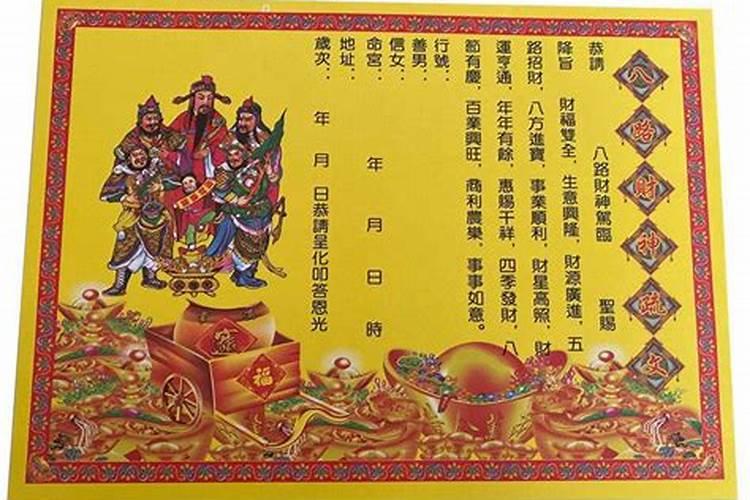 八路財神疏文
恭請 八路財神駕臨 聖賜
降旨 財福雙全，生意興隆，財源廣進，五
路招財，八方進寶，事業順利，財星高照，財
運亨通，年年有餘，惠賜千祥，四季發財，八
節有慶，百業興旺，商利農樂。事事如意。
行號：
善男：
信女：
命宮： 年 月 日 時
地址：
歲次： 年 月 日恭請呈化叩答恩光
福